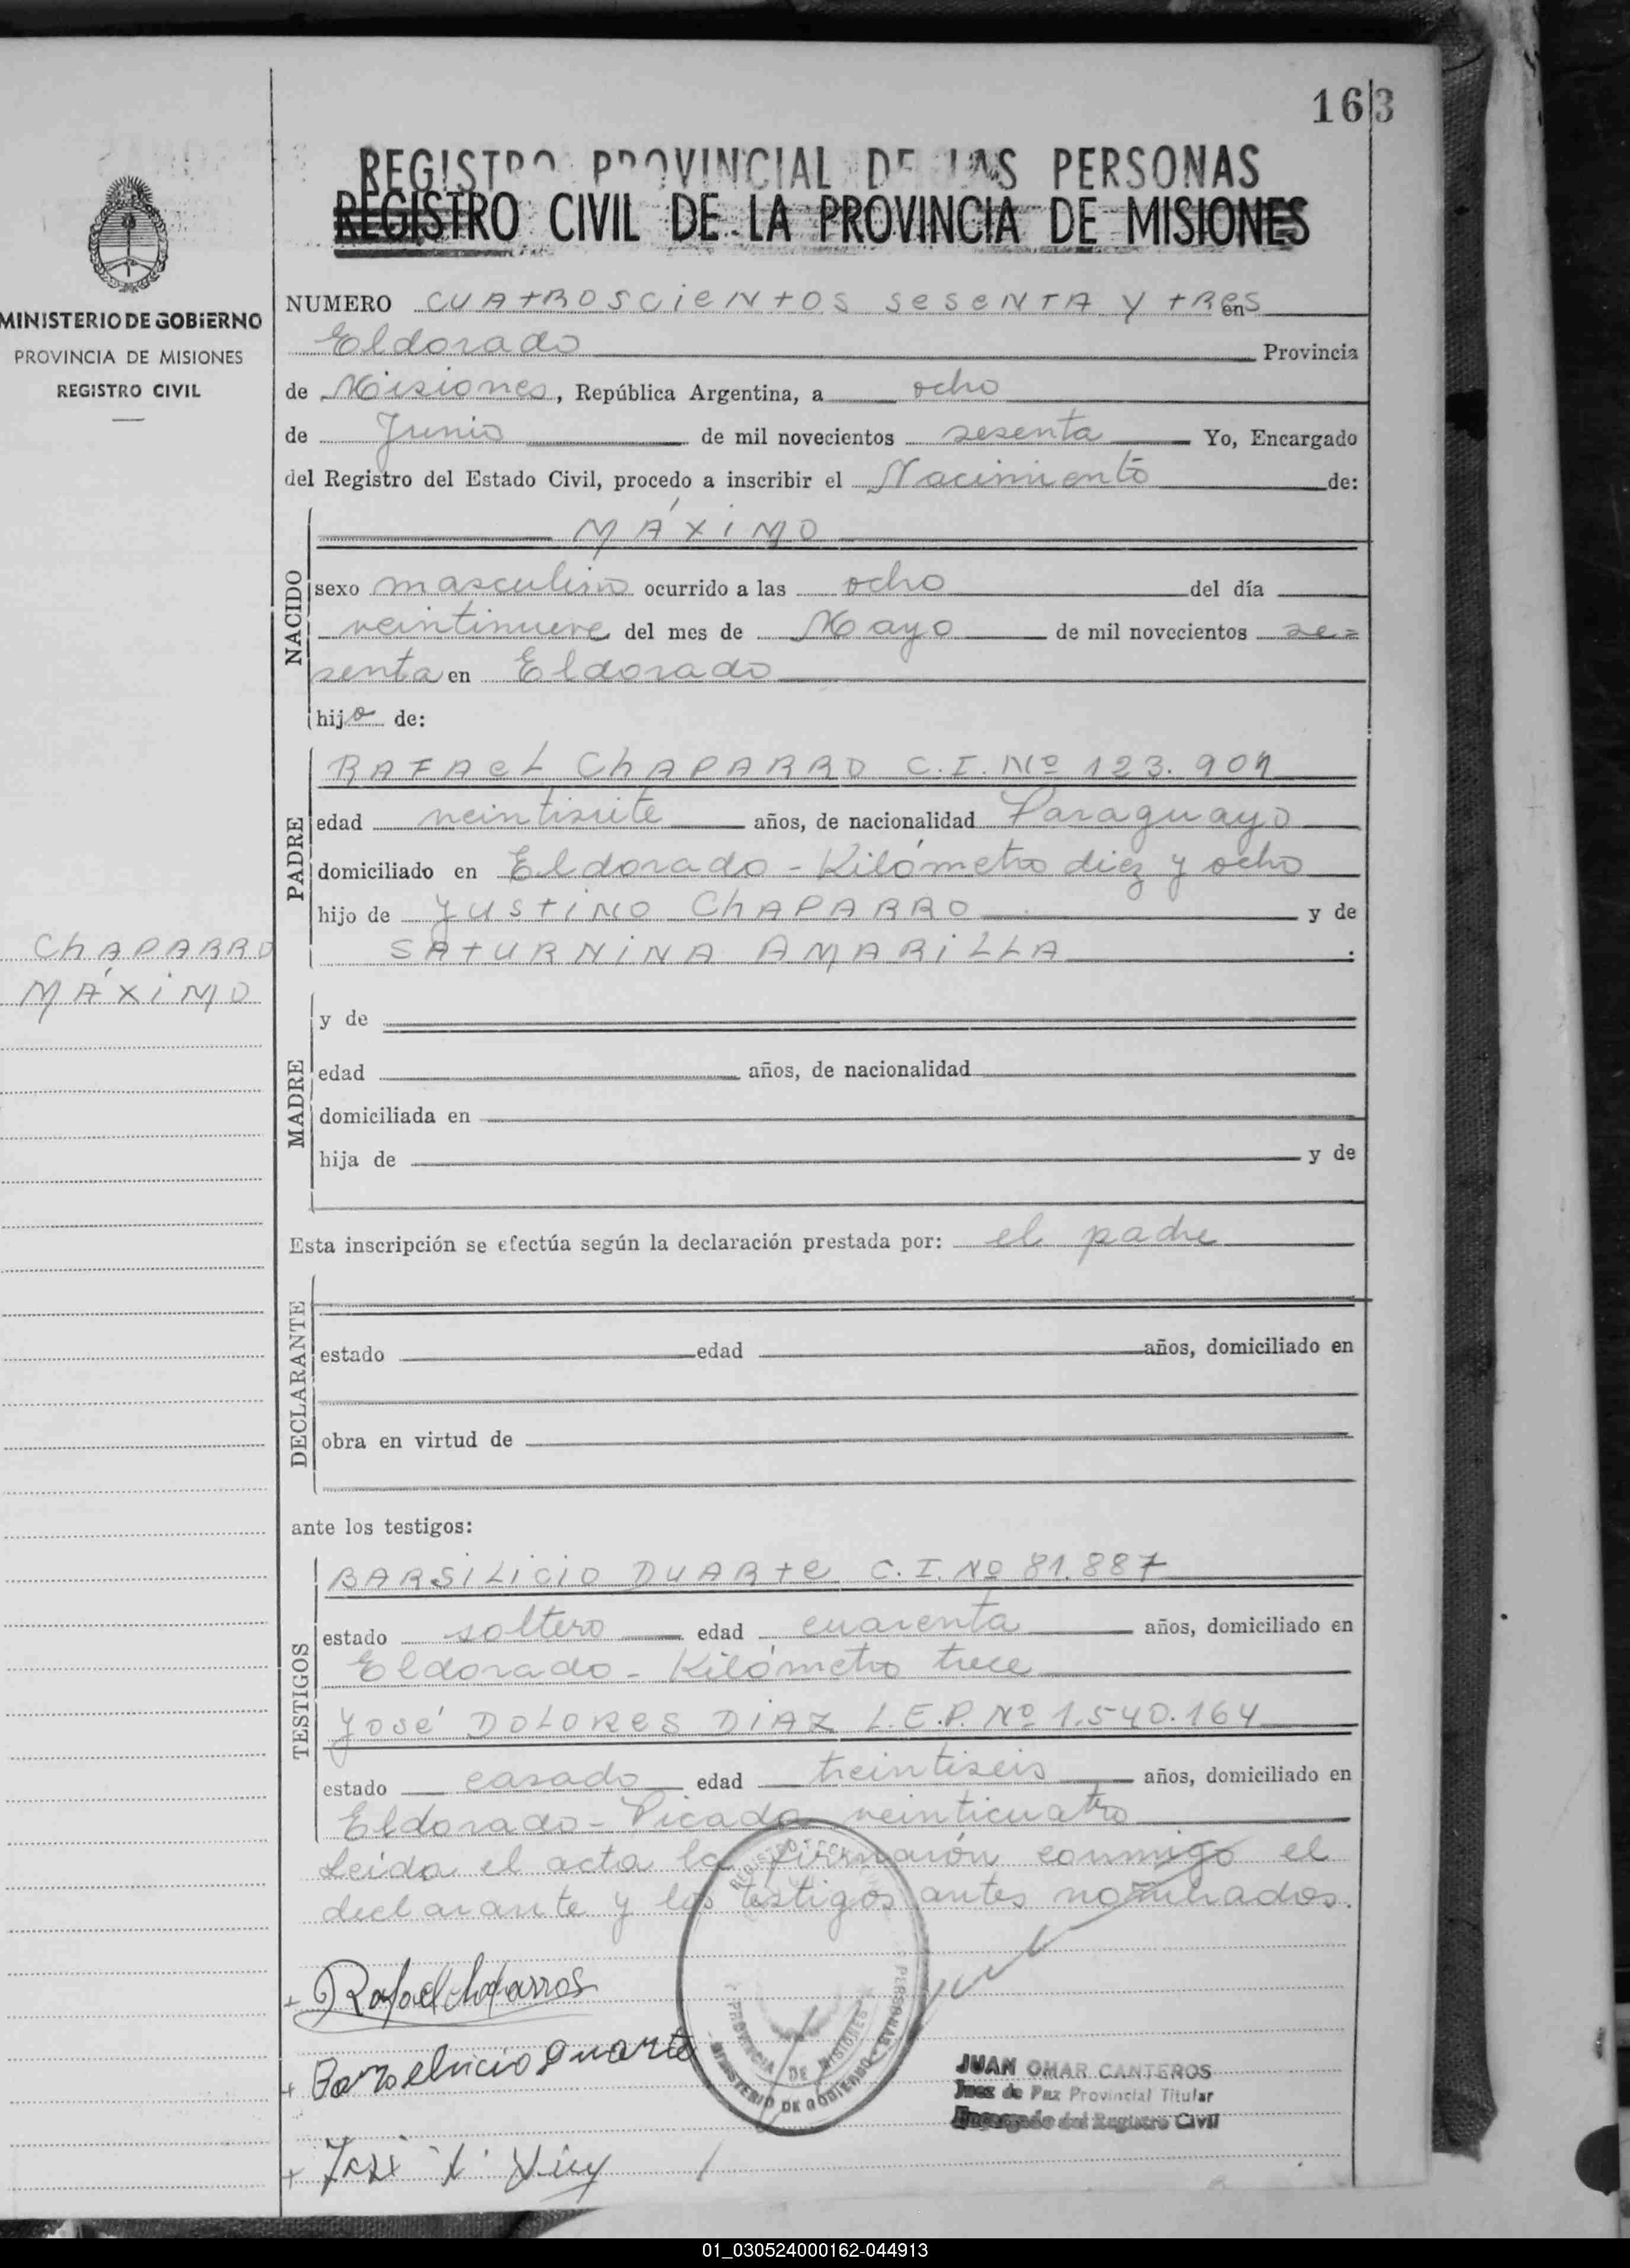 163
REGISTRO PROVINCIAL DE LAS PERSONAS
REGISTRO CIVIL DE LA PROVINCIA DE MISIONES
MINISTERIO DE GOBIERNO
PROVINCIA DE MISIONES
REGISTRO CIVIL
NUMERO CUATROSCIENTOS SESENTA Y TRES en
Eldorado Provincia
de Misiones, República Argentina, a ocho
de Junio de mil novecientos sesenta Yo, Encargado
del Registro del Estado Civil, procedo a inscribir el Nacimiento de:
NACIDO
MÁXIMO
sexo masculino ocurrido a las ocho del día
veintinueve del mes de Mayo de mil novecientos se=
senta en Eldorado
hijo de:
PADRE
RAFAEL CHAPARRO C.I. Nº 123.909
edad veintisiete años, de nacionalidad Paraguayo
domiciliado en Eldorado - Kilómetro diez y ocho
hijo de JUSTINO CHAPARRO y de
SATURNINA AMARILLA.
CHAPARRO
MÁXIMO
MADRE
y de
edad años, de nacionalidad
domiciliada en
hija de y de
Esta inscripción se efectúa según la declaración prestada por: el padre
DECLARANTE
estado edad años, domiciliado en
obra en virtud de
ante los testigos:
TESTIGOS
BARSILICIO DUARTE C.I. Nº 81.887
estado soltero edad cuarenta años, domiciliado en
Eldorado - Kilómetro trece
JOSÉ DOLORES DIAZ L.E.P. Nº 1.540.164
estado casado edad treintiseis años, domiciliado en
Eldorado - Picada veinticuatro
Leida el acta la firmarón conmigo el
declarante y los testigos antes nombrados.
+ Rafael Chaparros
+ Barselicio Duarte
+ José
PROVINCIA DE MISIONES
MINISTERIO DE GOBIERNO
PERSONAS
JUAN OMAR CANTEROS
Juez de Paz Provincial Titular
Encargado del Registro Civil
01_030524000162-044913